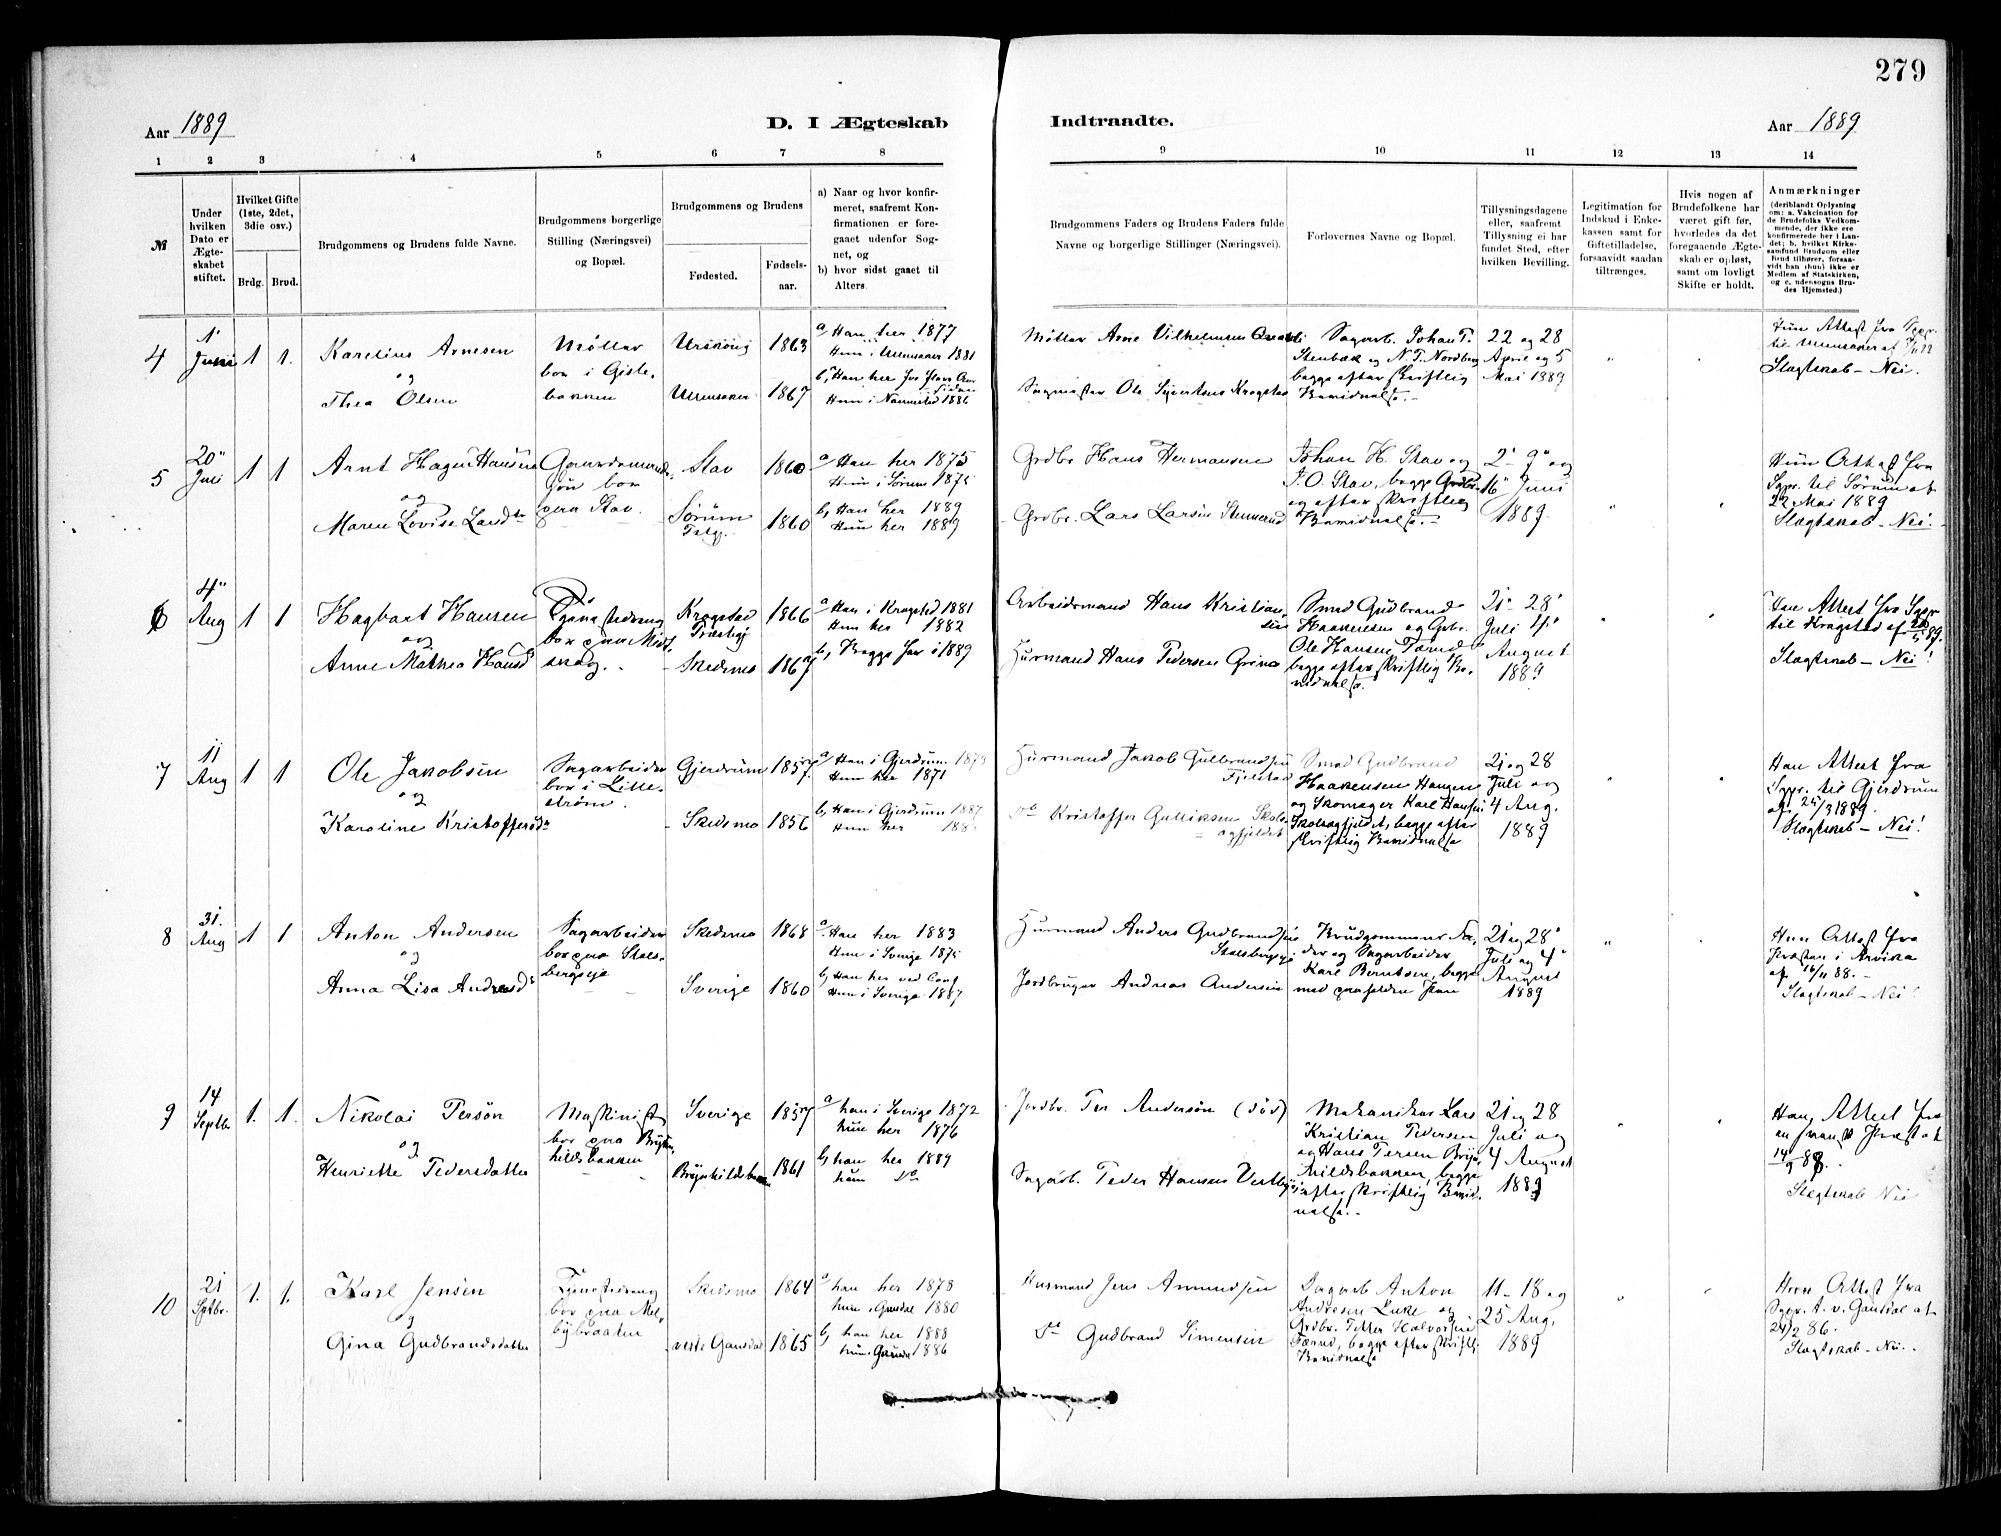 279
Aar 1889
D. I Ægteskab Indtraadte.
Aar 1889
1 2 3 4 5 6 7 8 9 10 11 12 13 14
№
Under hvilken Dato er Ægteskabet stiftet.
Hvilket Gifte (1ste, 2det, 3die osv.)
Brdg. Brud.
Brudgommens og Brudens fulde Navne.
Brudgommens borgerlige Stilling (Næringsvei) og Bopæl.
Brudgommens og Brudens
Fødested.
Fødsels-aar.
a) Naar og hvor konfirmeret, saafremt Konfirmationen er foregaaet udenfor Sognet, og
b) hvor sidst gaaet til Alters.
Brudgommens Faders og Brudens Faders fulde Navne og borgerlige Stillinger (Næringsvei).
Forlovernes Navne og Bopæl.
Tillysningsdagene eller, saafremt Tillysning ei har fundet Sted, efter hvilken Bevilling.
Legitimation for Indskud i Enkekassen samt for Giftetilladelse, forsaavidt saadan tiltrænges.
Hvis nogen af Brudefolkene har været gift før, hvorledes da det foregaaende Ægteskab er opløst, samt om lovligt Skifte er holdt.
Anmærkninger
(deriblandt Oplysning om: a. Vakcination for de Brudefolks Vedkommende, der ikke ere konfirmerede her i Landet; b. hvilket Kirkesamfund Brudgom eller Brud tilhører, forsaavidt han (hun) ikke er Medlem af Statskirken, og c. udensogns Brudes Hjemsted.)
4
1' Juni
1 1.
Karelius Arnesen
og
Thea Olsen
Møller
bor i Gistebakken
Urskoug 1863
Ullensaker 1867
a, Han her 1877
Hun i Ullensaker 1881
Hun i Nannestad 1886
Møller Arne Vilhelmsen
Sagmester Ole Syvertsen Krogstad
Sagarb. Johan T.
Stenbæk og N. T. Nordberg
begge efter skriftlig
Bevidnelse.
22 og 28
April og 5
Mai 1889
Hun Attest fra Sgpr.
til Ullensaker af
Slægtskab – Nei.
5
20" Juli
1 1
Arnt Hagen Hansen
og
Maren Lovise Larsdtr
Gaardmand
bor
paa Stav.
Stav 1860
Sørum 1860
a, Han her 1875
Hun i Sørum 1875
b, Han her 1889
Hun her 1889
Grdbr. Hans Hermansen
Grdbr. Lars Larsen
Johan H. Stav og
J. O. Stav, begge Grdbr.
og efter skriftlig
Bevidnelse.
2' 9" og
16" Juni
1889.
Hun Attest fra
Sgpr. til Sørum af
22 Mai 1889
Slægtskab – Nei.
6
4" Aug
1 1
Hagbart Hansen
og
Anne Mathea Hansd
Tjenestedreng
bor paa
skog.
Krogstad 1866
Skedsmo 1867
a, Han i Krogstad 1881
Hun her 1882
b, Begge her i 1889
Arbeidsmand Hans Kristiansen
Husmand Hans Pedersen
Smed Gudbrand
Haakensen og Grbr.
Ole Hansen
begge efter skriftlig Bevidnelse.
21' 28'
Juli 4"
August
1889
Han Attest fra Sgpr
til Krogstad af
Slægtskab – Nei!
7
11 Aug
1 1
Ole Jakobsen
og
Karoline Kristoffersdtr
Sagarbeider
bor i Lillestrøm.
Gjerdrum 1857
Skedsmo 1856
a, Han i Gjerdrum 1873
Hun her 1871
b, Han i Gjerdrum 1887
Hun her
Husmand Jakob Gulbrandsen
Fjelstad
do Kristoffer Gulliksen
Smed Gudbrand
Haakensen Haugen
og Skomager Karl Hansen
begge efter
skriftlig Bevidnelse
21 og 28
Juli og
4 Aug.
1889
Han Attest fra
Sgpr. til Gjerdrum
af 24/3 1889.
Slægtskab – Nei!
8
31. Aug
1 1
Anton Andersen
og
Anna Lisa Andersdtr
Sagarbeider
bor paa Stalsbergeje
Skedsmo 1868
Sverige 1860
a. Han her 1883
Hun i Sverige 1875
b, Han her ved Conf
Hun i Sverige 1887
Husmand Anders Gudbrandsen
Stalsbergeje
Jordbruger Andreas Andersen
Brudgommens Fader og Sagarbeider
Karl Berntsen, begge
med
21 og 28'
Juli og 4"
August
1889
Hun Attest fra
Præsten i Arvika
af 16/11 88. –
Slægtskab – Nei!
9
14 Septbr
1. 1.
Nikolai Persøn
og
Henriette Pedersdatter
Maskinist
bor paa Brynhildsbakken
Sverige 1857
Brynhildsbakken 1861
a, han i Sverige 1872
hun her 1876
b, han her 1889
hun do
Jordbr. Per Andersøn (død)
Sagarb. Peder Hansen
Mekaniker Lars
Kristian Pedersen
og Hans Persen Brynhildsbakken, begge
efter skriftlig Bevidnelse. –
21 og 28
Juli og
4 August
1889
Han, Attest fra
en svensk Præst af
14/9 88.
Slægtskab Nei
10
21 Sptbr.
1. 1.
Karl Jensen
og
Gina Gudbrandsdatter
Tjenestedreng
bor paa
Skedsmo 1864
1865
a, han her 1878
hun i Gausdal 1880
b, han her 1888
hun Gausdal 1886
Husmand Jens Amundsen
do Gudbrand Simensen
Dagarb Anton
Andresen Luke og
Grdbr. Petter Halvorsen
begge efter skriftl.
Bevidnelse
11 – 18 og
25 Aug.
1889
Hun Attest fra
Sgpr. t. v. Gausdal af
24/2 86.
Slægtskab – Nei.